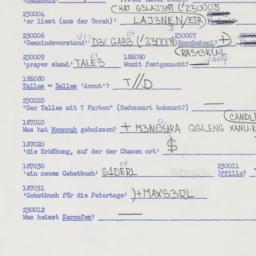 (HAT G3LAJ3NT (!230005
230004
'er liest (aus der Torah)' LAJ3NEN/ER)
230006 230007
'Gemeindevorstand' D3R GAB3 (!230007) Bochekool' Ɖ
230009 186090
'prayer shawl' TALES Womit festgemacht?
186080
Talles = Dalles 'Armut'? T//D
230010
"Der Talles mit 7 Farben" (Redensart bekannt?) —
187010 (CANDLE
Was hat Menorah geheissen? + M3NOURA
187020
'die Erhöhung, auf der der Chasen ort' $
187030 230011
'ein neues Gebetbuch' SIDERL Pfille?
187031
'Gebetbuch für die Feiertage' )+MAXS3RL
230012
Was heisst Karoofes? —